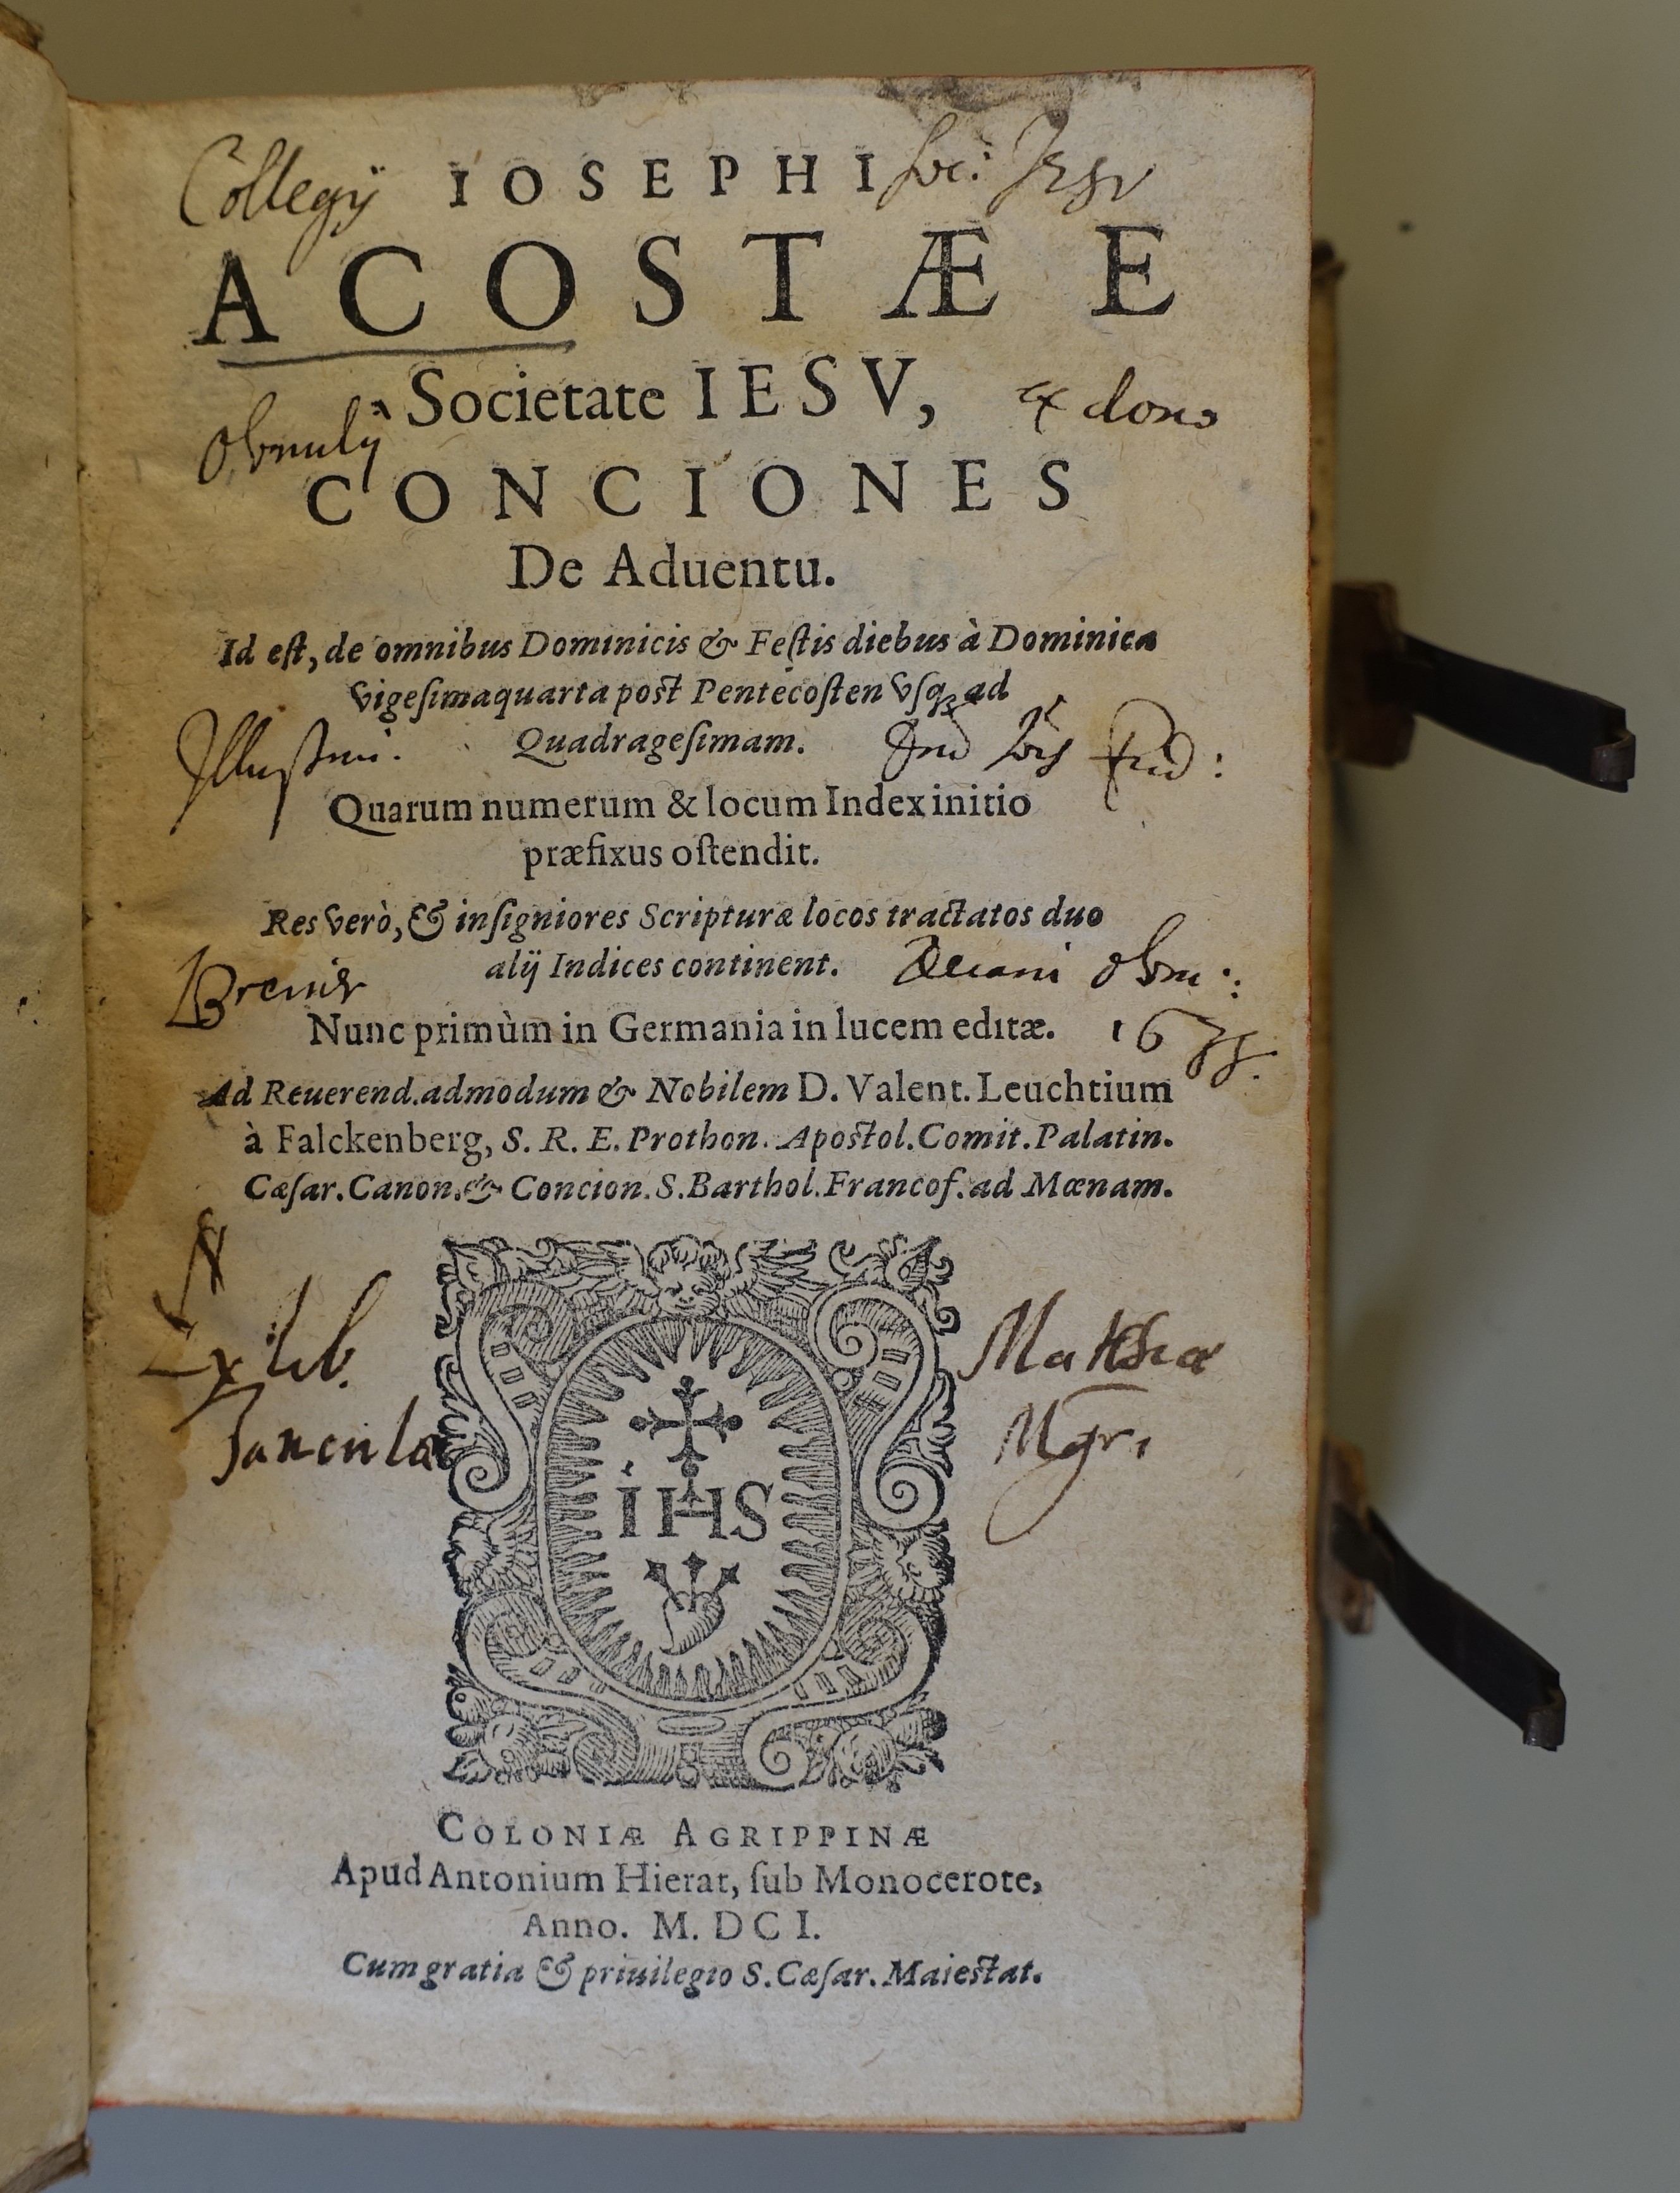 Collegij IOSEPHI Soc: Jesv
ACOSTÆ E
Societate IESV, ex dono
CONCIONES
De Aduentu.
Id eſt, de omnibus Dominicis & Feſtis diebus à Dominica
vigeſimaquarta poſt Pentecoſten vſq; ad
Illustrmi. Quadrageſimam.
Quarum numerum & locum Index initio
præfixus oſtendit.
Res verò, & inſigniores Scripturæ locos tractatos duo
alij Indices continent. Decani
Nunc primùm in Germania in lucem editæ.
Ad Reuerend. admodum & Nobilem D. Valent. Leuchtium
à Falckenberg, S. R. E. Prothon. Apoſtol. Comit. Palatin.
Cæſar. Canon. & Concion. S. Barthol. Francof. ad Mœnam.
Ex lib. Mathiæ
IHS
COLONIÆ AGRIPPINÆ
Apud Antonium Hierat, ſub Monocerote,
Anno. M. DCI.
Cum gratia & priuilegio S. Cæſar. Maieſtat.